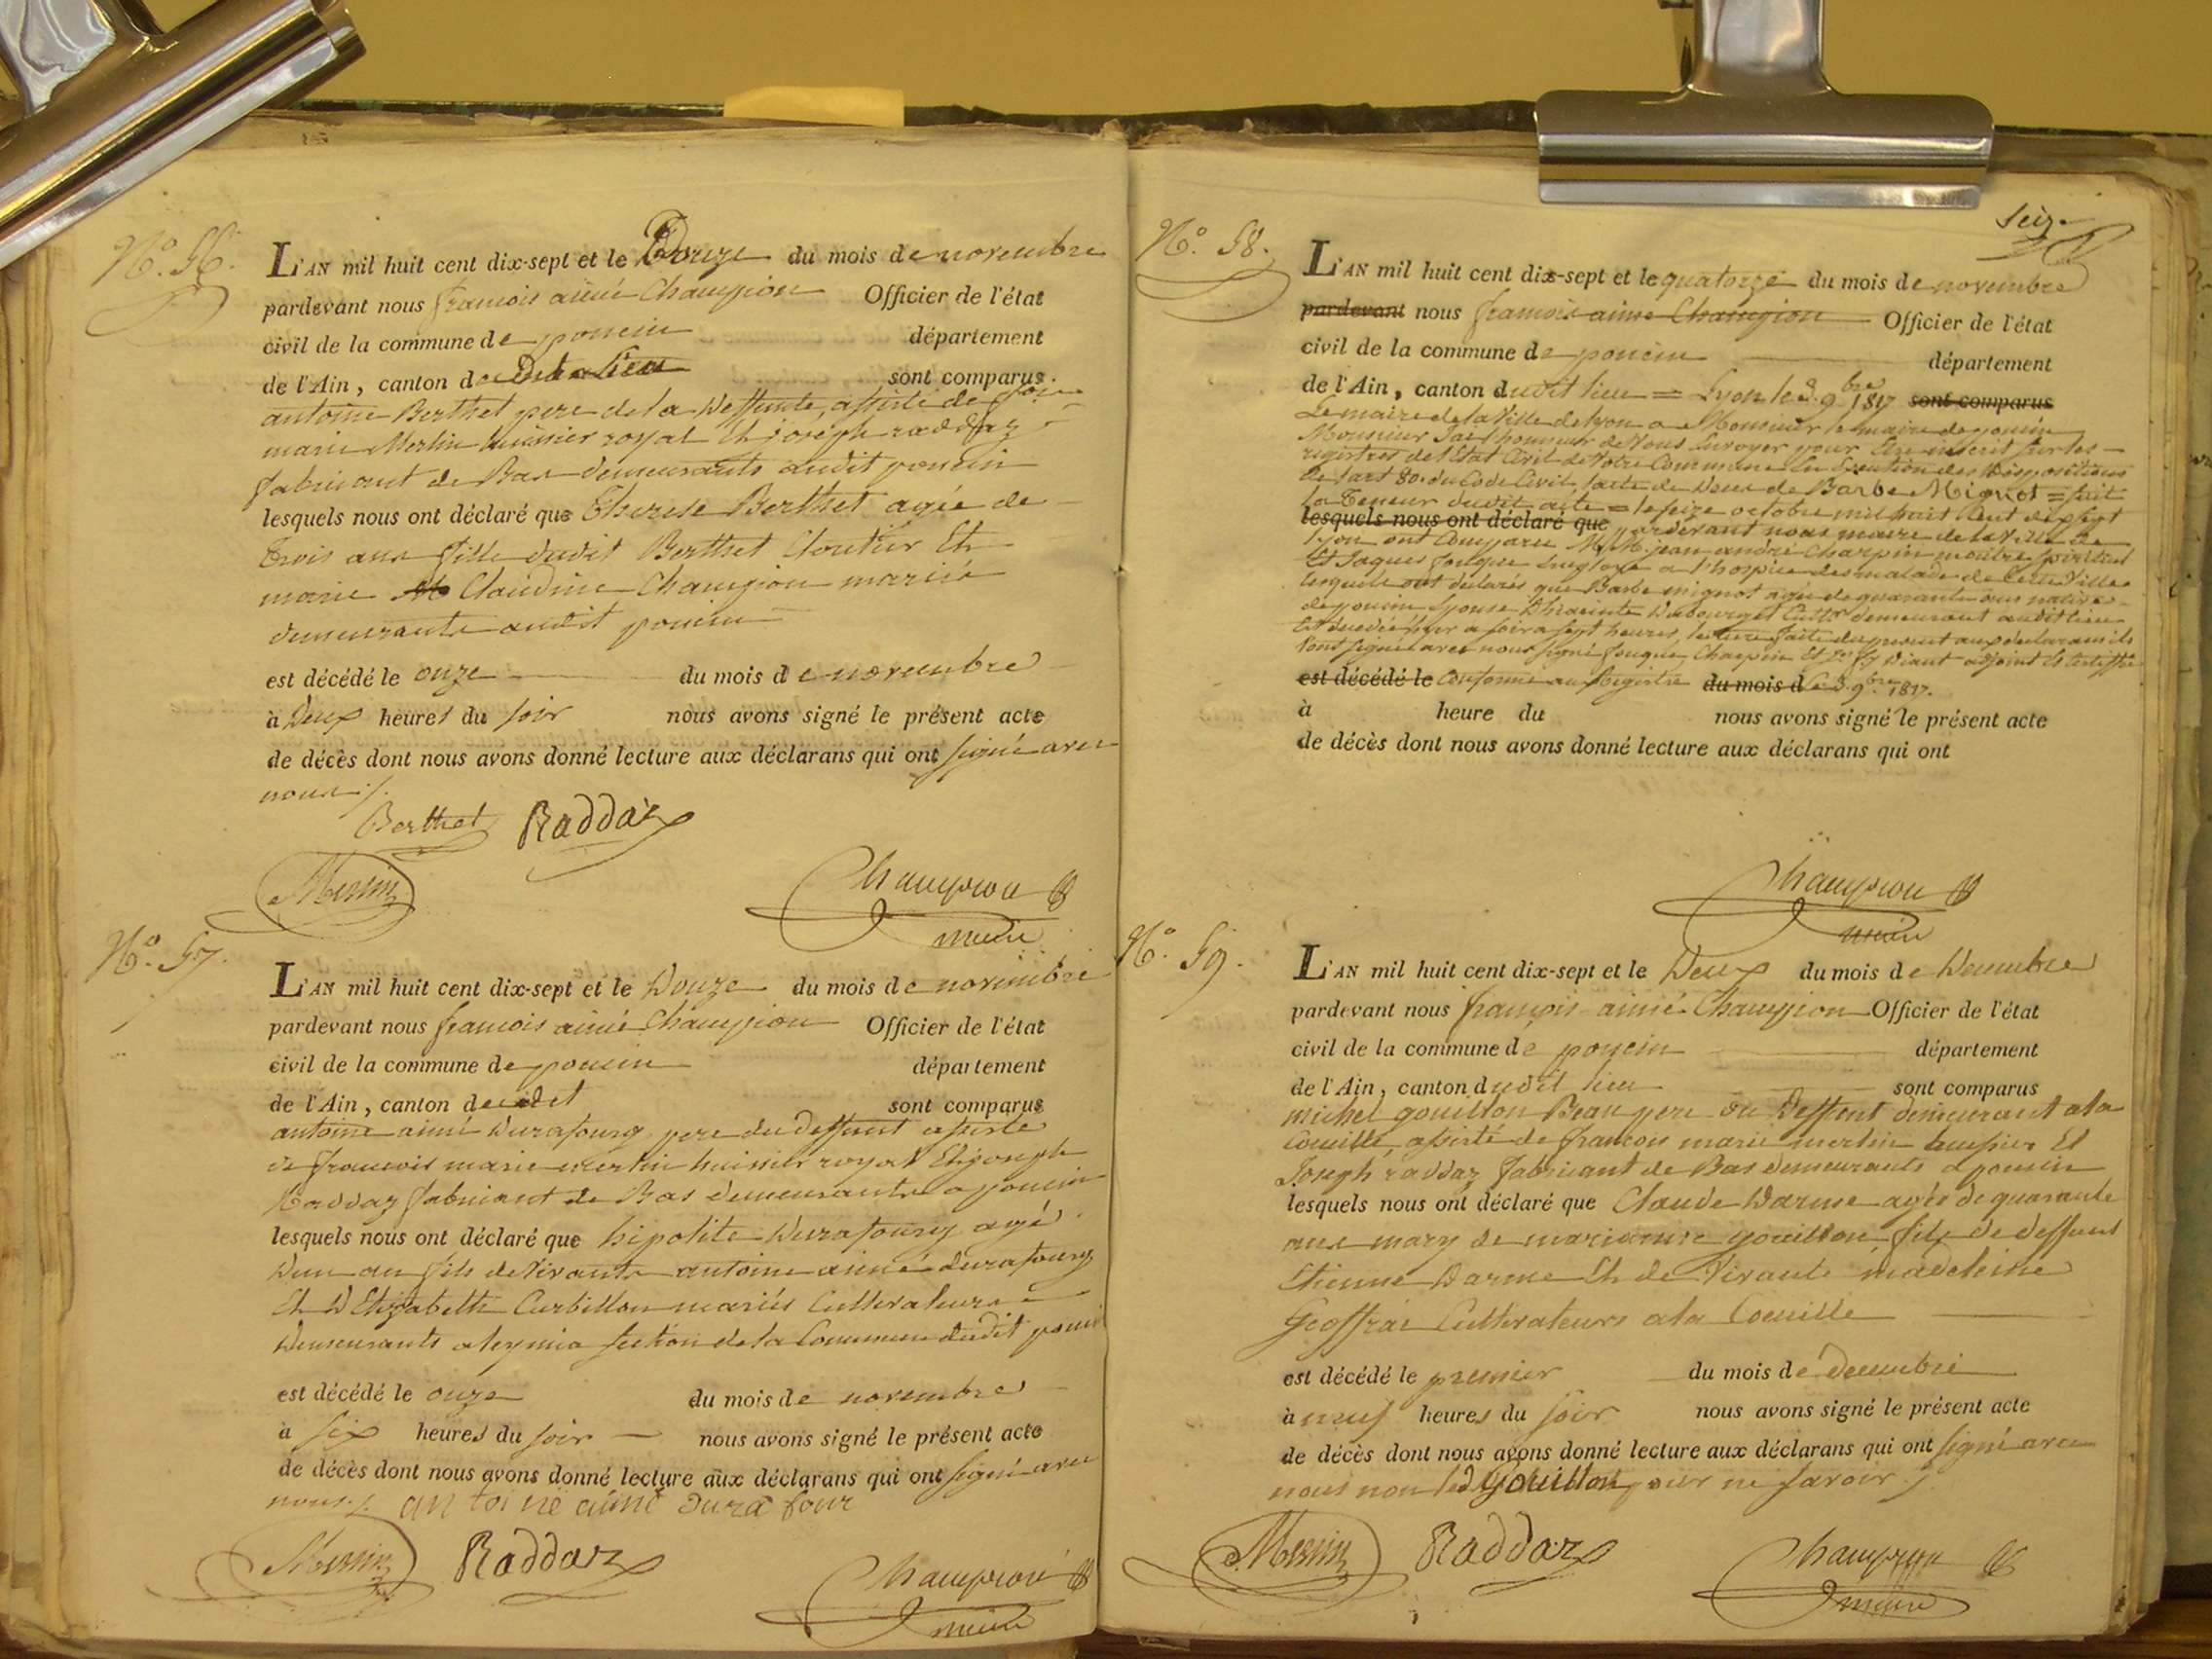 N.º 56.
L'AN mil huit cent dix-sept et le Douze du mois de novembre
pardevant nous francois aimé Champion Officier de l'état
civil de la commune de poncin département
de l'Ain, canton dudit lieu sont comparus
antoine Berthet pere de la deffunte, assisté de
marie Merlin huissier royal Et joseph raddaz
fabricant de Bas demeurants audit poncin
lesquels nous ont déclaré que Therese Berthet agée de
Trois ans fille dudit Berthet Cloutier Et
marie Claudine Champion mariés
demeurants audit poncin
est décédé le onze du mois de novembre
à Deux heures du soir nous avons signé le présent acte
de décès dont nous avons donné lecture aux déclarans qui ont signé avec
nous ./.
Berthet Raddaz
Merlin Champion
maire
N.º 57.
L'AN mil huit cent dix-sept et le Douze du mois de novembre
pardevant nous francois aimé Champion Officier de l'état
civil de la commune de poncin département
de l'Ain, canton dudit sont comparus
antoine aimé Durafourg pere du deffunt assisté
de francois marie merlin huissier royal Et joseph
Raddaz fabricant de Bas demeurants a poncin
lesquels nous ont déclaré que hipolite Durafourg agé
Dun an fils de vivants antoine aimé durafourg
Et D'Elizabeth Curbillon mariés Cultivateurs
Demeurants a leymia section de la Commune dudit poncin
est décédé le onze du mois de novembre
à six heures du soir nous avons signé le présent acte
de décès dont nous avons donné lecture aux déclarans qui ont signé avec
nous ./. antoine aimé durafour
Merlin Raddaz Champion
maire
Seize
N.º 58.
L'AN mil huit cent dix-sept et le quatorze du mois de novembre
pardevant nous francois aimé Champion Officier de l'état
civil de la commune de poncin département
de l'Ain, canton dudit lieu = Lyon le 3. 9bre 1817 sont comparus
Le maire de la Ville de Lyon a Monsieur le maire de poncin
Monsieur J'ai l'honneur de Vous Envoyer pour Etre inscrit sur les
registres de l'Etat Civil de Votre Commune En Execution des Dispositions
de l'art 80. du Code Civil, l'acte de Deces de Barbe Mignot = suit
la Teneur dudit acte = le seize octobre mil huit Cent dix sept
lesquels nous ont déclaré que pardevant nous maire de la Ville de
Lyon ont Comparu MM. jean andré Charpin
Et Jaques fouque Employé a l'hospice des malades de Cette Ville
lesquels ont declarés que Barbe mignot agée de quarante ans native
de poncin Epouse Cultr demeurant audit lieu
Est decedée hyer a soir a sept heures, lecture faite du present aux declarants ils
l'ont signé avec nous signé fouque, Charpin Et adjoint
est décédé le Conforme au Registre du mois de Ce 3. 9bre 1817.
à heure du nous avons signé le présent acte
de décès dont nous avons donné lecture aux déclarans qui ont
Champion
maire
N.º 59.
L'AN mil huit cent dix-sept et le Deux du mois de Decembre
pardevant nous françois aimé Champion Officier de l'état
civil de la commune de poncin département
de l'Ain, canton dudit lieu sont comparus
michel gouillon Beau pere du Deffunt demeurant a la
Coueille, assisté de francois marie merlin huissier Et
Joseph raddaz fabricant de Bas demeurants a poncin
lesquels nous ont déclaré que Claude Darme agés de quarante
ans mary de marianne gouillon, fils de deffunt
Etienne Darme Et de Vivante madeleine
Geoffrai Cultivateurs a la Coueille
est décédé le premier du mois de decembre
à neuf heures du soir nous avons signé le présent acte
de décès dont nous avons donné lecture aux déclarans qui ont signé avec
nous non led gouillon pour ne savoir ./.
Merlin Raddaz Champion
maire